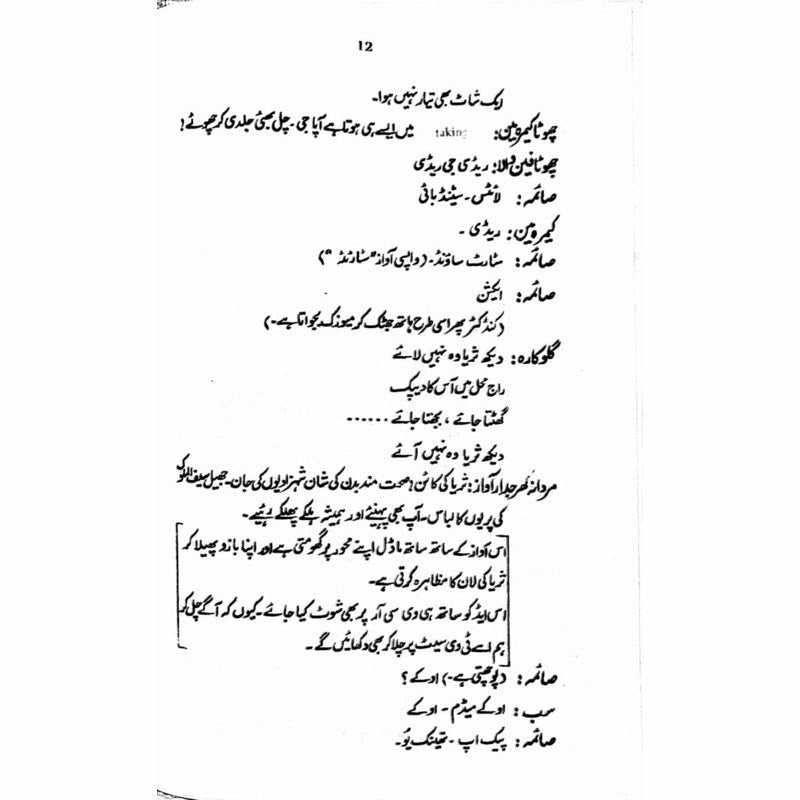 12
ایک شاٹ بھی تیار نہیں ہوا۔
چھوٹا کیمرہ مین: taking میں ایسے ہی ہوتا ہے آپا جی۔ چل بھئی جلدی کر چھوٹے!
چھوٹا فین والا: ریڈی جی ریڈی
صائمہ: لائٹس۔ سٹینڈ بائی
کیمرہ مین: ریڈی۔
صائمہ: سٹارٹ ساؤنڈ۔ (واپسی آواز "سٹارٹڈ")
صائمہ: ایکشن
(کنڈکٹر پھر اسی طرح ہاتھ جھٹک کر میوزک بجواتا ہے۔)
گلوکارہ: دیکھ ثریا وہ نہیں لائے
راج محل میں آس کا دیپک
گھٹتا جائے، بجھتا جائے ......
دیکھ ثریا وہ نہیں آئے
مردانہ گھرجدار آواز: ثریا کی کاٹن! صحت مند بدن کی شان شہزادیوں کی جان۔ جھیل سیف الملوک
کی پریوں کا لباس۔ آپ بھی پہنیئے اور ہمیشہ ہلکے پھلکے رہیئے۔
اس آواز کے ساتھ ساتھ ماڈل اپنے محور پر گھومتی ہے اور اپنا بازو پھیلا کر
ثریا کی لان کا مظاہرہ کرتی ہے۔
اس ایڈ کو ساتھ ہی وی سی آر پر بھی شوٹ کیا جائے۔ کیوں کہ آگے چل کر
ہم اسے ٹی وی سیٹ پر چلا کر بھی دکھائیں گے۔
صائمہ: (پوچھتی ہے۔) اوکے؟
سب: اوکے میڈم۔ اوکے
صائمہ: پیک اپ۔ تھینک یو۔